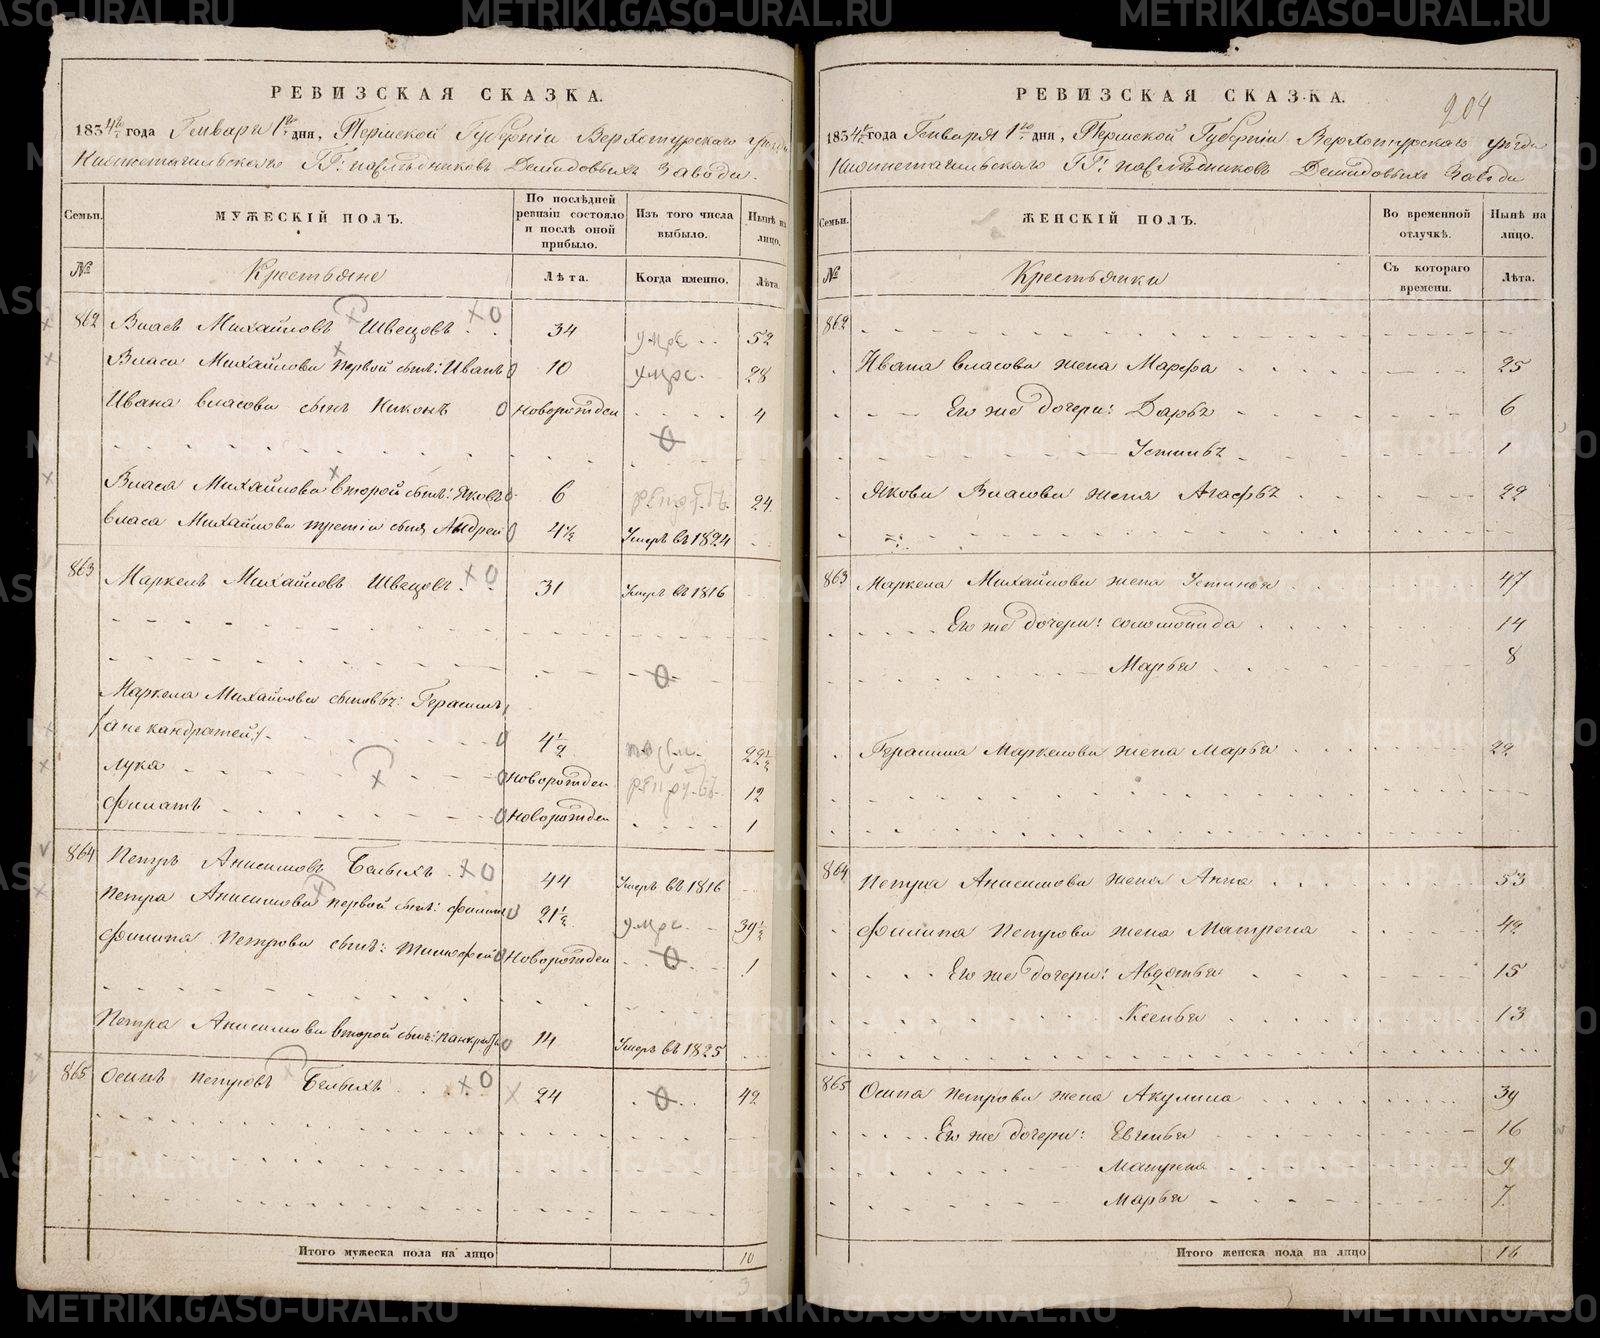 РЕВИЗСКАЯ СКАЗКА.
1834 года Генваря 1го дня, Пермской Губернiи Верхотурского уезда
Нижнетагильскаго ГГ: наследниковъ Демидовыхъ Завода.
Семьи.
МУЖЕСКIЙ ПОЛЪ.
По послѣдней ревизiи состояло и послѣ оной прибыло.
Изъ того числа выбыло.
Нынѣ на лицо.
№
Крестьяне
Лѣта.
Когда именно.
Лѣта.
862 Власъ Михайловъ Швецовъ 34 умре 52
Власа Михайлова первой сынъ: Иванъ 10 умре 28
Ивана Власова сынъ Никонъ новорожден 4
Власа Михайлова второй сынъ: Яковъ 6 24
Власа Михайлова третiй сынъ Андрей 4½ Умеръ въ 1824
863 Маркелъ Михайловъ Швецовъ 31 Умеръ въ 1816
Маркела Михайлова сыновья: Герасимъ
(а не кандратей) 4½ 22½
Лука Новорожден 12
Филатъ Новорожден 1
864 Петръ Анисимовъ Белыхъ 44 Умеръ въ 1816
Петра Анисимова первой сынъ: Филипъ 21½ умре 39½
Филипа Петрова сынъ: Тимофей Новорожден 1
Петра Анисимова второй сынъ: Панкратъ 14 Умеръ въ 1825
865 Осипъ Петровъ Белыхъ 24 42
Итого мужеска пола на лицо 10
3
204
РЕВИЗСКАЯ СКАЗКА.
1834 года Генваря 1го дня, Пермской Губернiи Верхотурского уезда
Нижнетагильскаго ГГ: наследниковъ Демидовыхъ Завода
Семьи.
ЖЕНСКIЙ ПОЛЪ.
Во временной отлучкѣ.
Нынѣ на лицо.
№
Крестьянки
Съ котораго времени.
Лѣта.
862
Ивана Власова жена Марфа 25
Его же дочери: Дарья 6
Устинья 1
Якова Власова жена Агафья 22
863 Маркела Михайлова жена Устинья 47
Его же дочери: Соломонида 14
Марья 8
Герасима Маркелова жена Марья 22
864 Петра Анисимова жена Анна 53
Филипа Петрова жена Матрена 42
Его же дочери: Авдотья 15
Ксенья 13
865 Осипа Петрова жена Акулина 39
Его же дочери: Евгенья 16
Матрена 9
Марья 7
Итого женска пола на лицо 16
METRIKI.GASO-URAL.RU